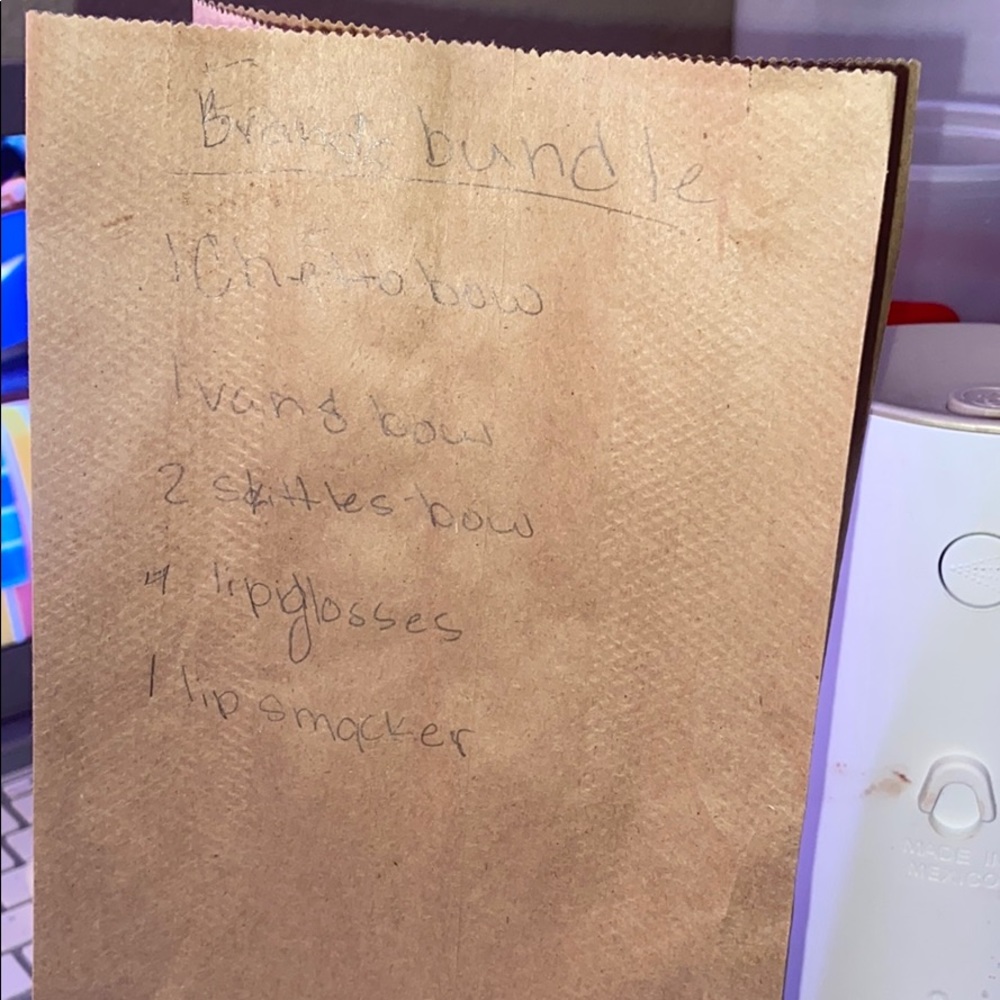 Brands bundle
1 Cheeto bow
1 vans bow
2 skittles bow
4 lipiglosses
1 lip smacker
MADE IN
MEXICO